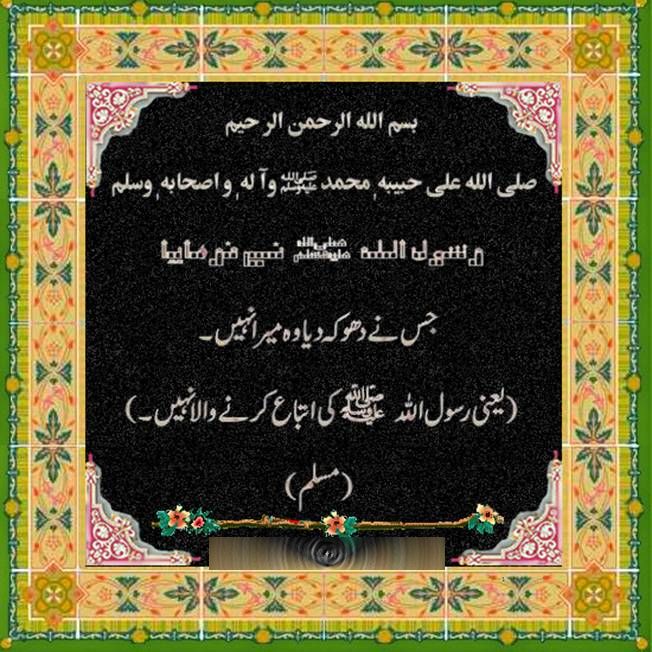 بسم الله الرحمن الرحيم
صلى الله على حبيبه محمد ﷺ وآله واصحابه وسلم
رسول الله ﷺ نے فرمایا
جس نے دھوکہ دیا وہ میرا نہیں۔
(یعنی رسول اللہ ﷺ کی اتباع کرنے والا نہیں۔)
(مسلم)